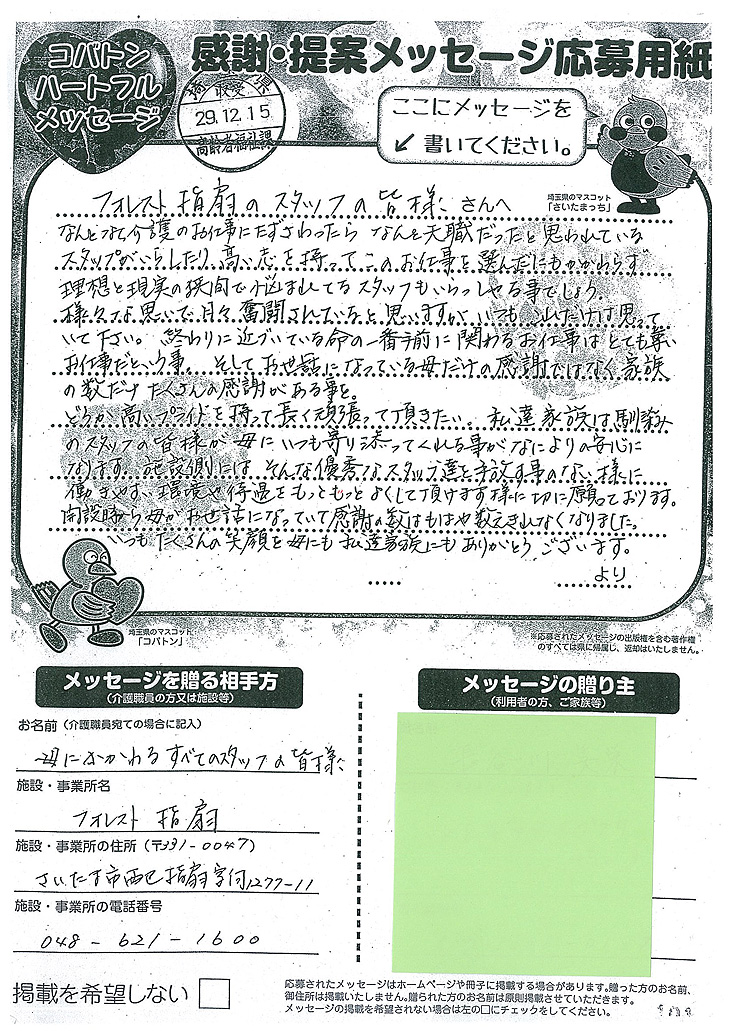 コバトン
ハートフル
メッセージ
感謝・提案メッセージ応募用紙
29.12.15
高齢者福祉課
ここにメッセージを
書いてください。
埼玉県のマスコット
「さいたまっち」
フォレスト指扇のスタッフの皆様 さんへ
なんとなく介護のお仕事にたずさわったら なんと天職だったと思われている
スタッフがいらしたり、高い志を持ってこのお仕事を選んだにもかかわらず
理想と現実の狭間で悩まれてるスタッフもいらっしゃる事でしょう。
様々な思いで日々奮闘されていると思いますが、いつも これだけは思って
いて下さい。終わりに近づいている命の一番手前に関わるお仕事はとても尊い
お仕事だという事。そしてお世話になっている母だけの感謝ではなく 家族
の数だけ たくさんの感謝がある事を。
どうか高いプライドを持って長く頑張って頂きたい。私達家族は馴染み
のスタッフの皆様が母にいつも寄り添ってくれる事がなによりの安心に
なります。施設側には そんな優秀なスタッフ達を手放す事のない様に
働きやすい環境や待遇をもっともっとよくして頂けます様に切に願っております。
開設時から母がお世話になっていて感謝の数はもはや数えきれなくなりました。
いつもたくさんの笑顔を母にも私達家族にもありがとうございます。
より
埼玉県のマスコット
「コバトン」
※応募されたメッセージの出版権を含む著作権
のすべては県に帰属し、返却はいたしません。
メッセージを贈る相手方
(介護職員の方又は施設等)
メッセージの贈り主
(利用者の方、ご家族等)
お名前(介護職員宛ての場合に記入)
母にかかわるすべてのスタッフの皆様
施設・事業所名
フォレスト 指扇
施設・事業所の住所(〒331-0047)
さいたま市西区指扇字付1277-11
施設・事業所の電話番号
048-621-1600
掲載を希望しない
応募されたメッセージはホームページや冊子に掲載する場合があります。贈った方のお名前、
御住所は掲載いたしません。贈られた方のお名前は原則掲載させていただきます。
メッセージの掲載を希望されない場合は左の□にチェックをしてください。